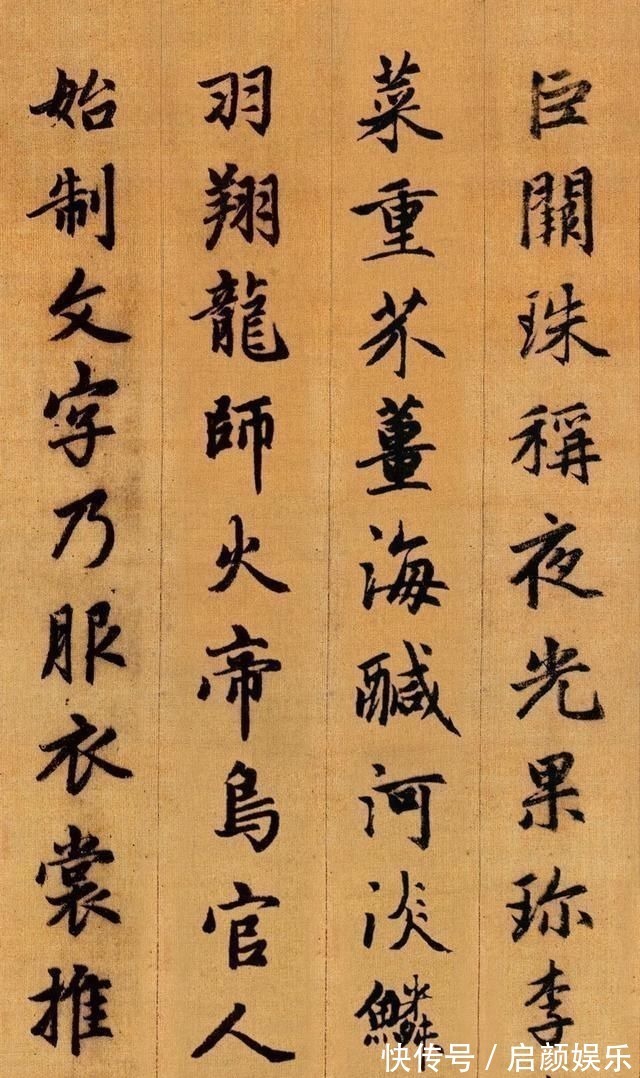 巨闕珠稱夜光果珍李
菜重芥薑海醎河淡鱗
羽翔龍師火帝鳥官人
始制文字乃服衣裳推
快传号/启颜娱乐